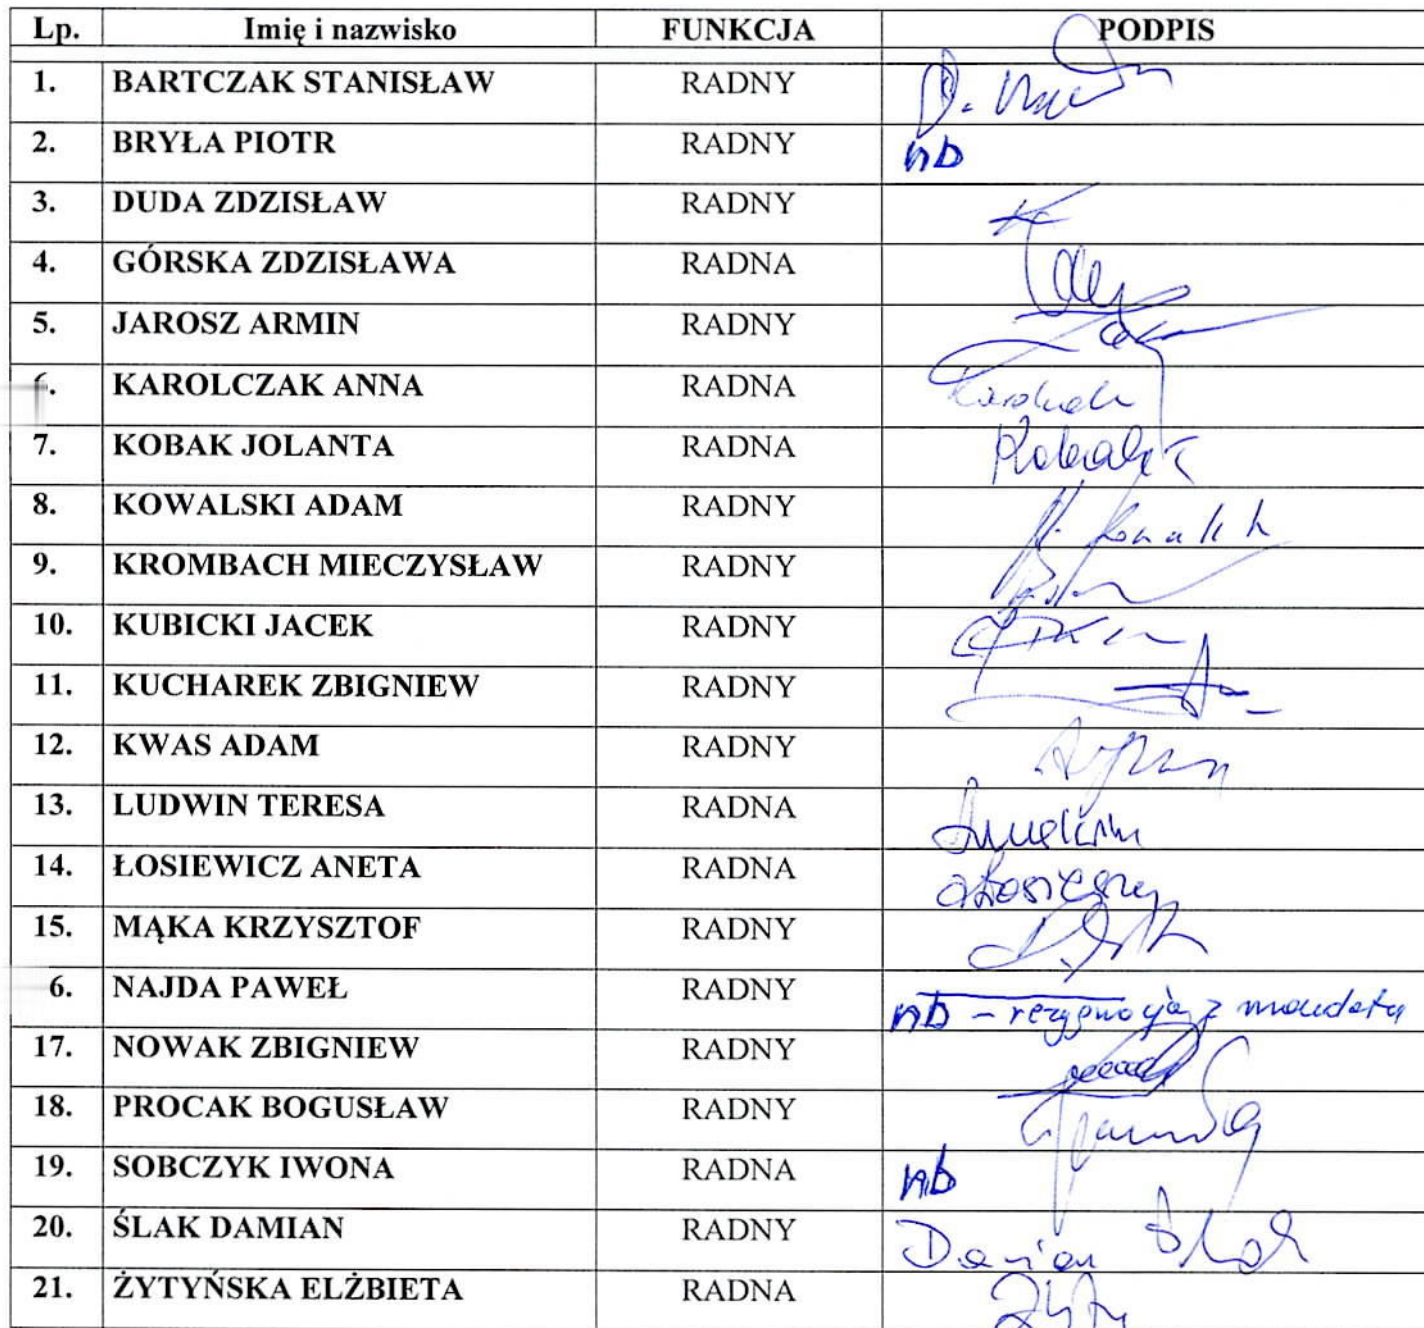 Lp. Imię i nazwisko FUNKCJA PODPIS
1. BARTCZAK STANISŁAW RADNY
2. BRYŁA PIOTR RADNY nb
3. DUDA ZDZISŁAW RADNY
4. GÓRSKA ZDZISŁAWA RADNA
5. JAROSZ ARMIN RADNY
6. KAROLCZAK ANNA RADNA
7. KOBAK JOLANTA RADNA
8. KOWALSKI ADAM RADNY
9. KROMBACH MIECZYSŁAW RADNY
10. KUBICKI JACEK RADNY
11. KUCHAREK ZBIGNIEW RADNY
12. KWAS ADAM RADNY
13. LUDWIN TERESA RADNA
14. ŁOSIEWICZ ANETA RADNA
15. MĄKA KRZYSZTOF RADNY
6. NAJDA PAWEŁ RADNY nb - rezygnacja z mandatu
17. NOWAK ZBIGNIEW RADNY
18. PROCAK BOGUSŁAW RADNY
19. SOBCZYK IWONA RADNA nb
20. ŚLAK DAMIAN RADNY Damian Ślak
21. ŻYTYŃSKA ELŻBIETA RADNA